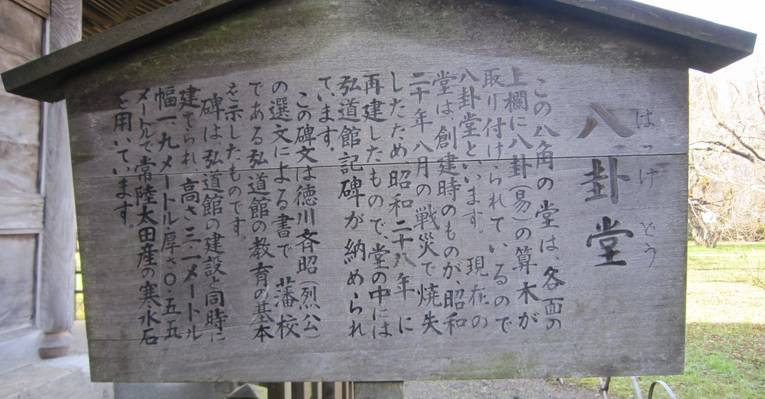 八卦堂
はっけ どう
この八角の堂は、各面の
上欄に八卦(易)の算木が
取り付けられているので
八卦堂といいます。現在の
堂は、創建時のものが、昭和
二十年八月の戦災で焼失
したため、昭和二十八年に
再建したもので、堂の中には
弘道館記碑が納められ
ています。
この碑文は徳川斉昭(烈公)
の選文による書で 藩校
である弘道館の教育の基本
を示したものです。
碑は、弘道館の建設と同時に
建てられ、高さ三・二メートル
幅一・九メートル厚さ〇・五五
メートルで常陸太田産の寒水石
を用いています。